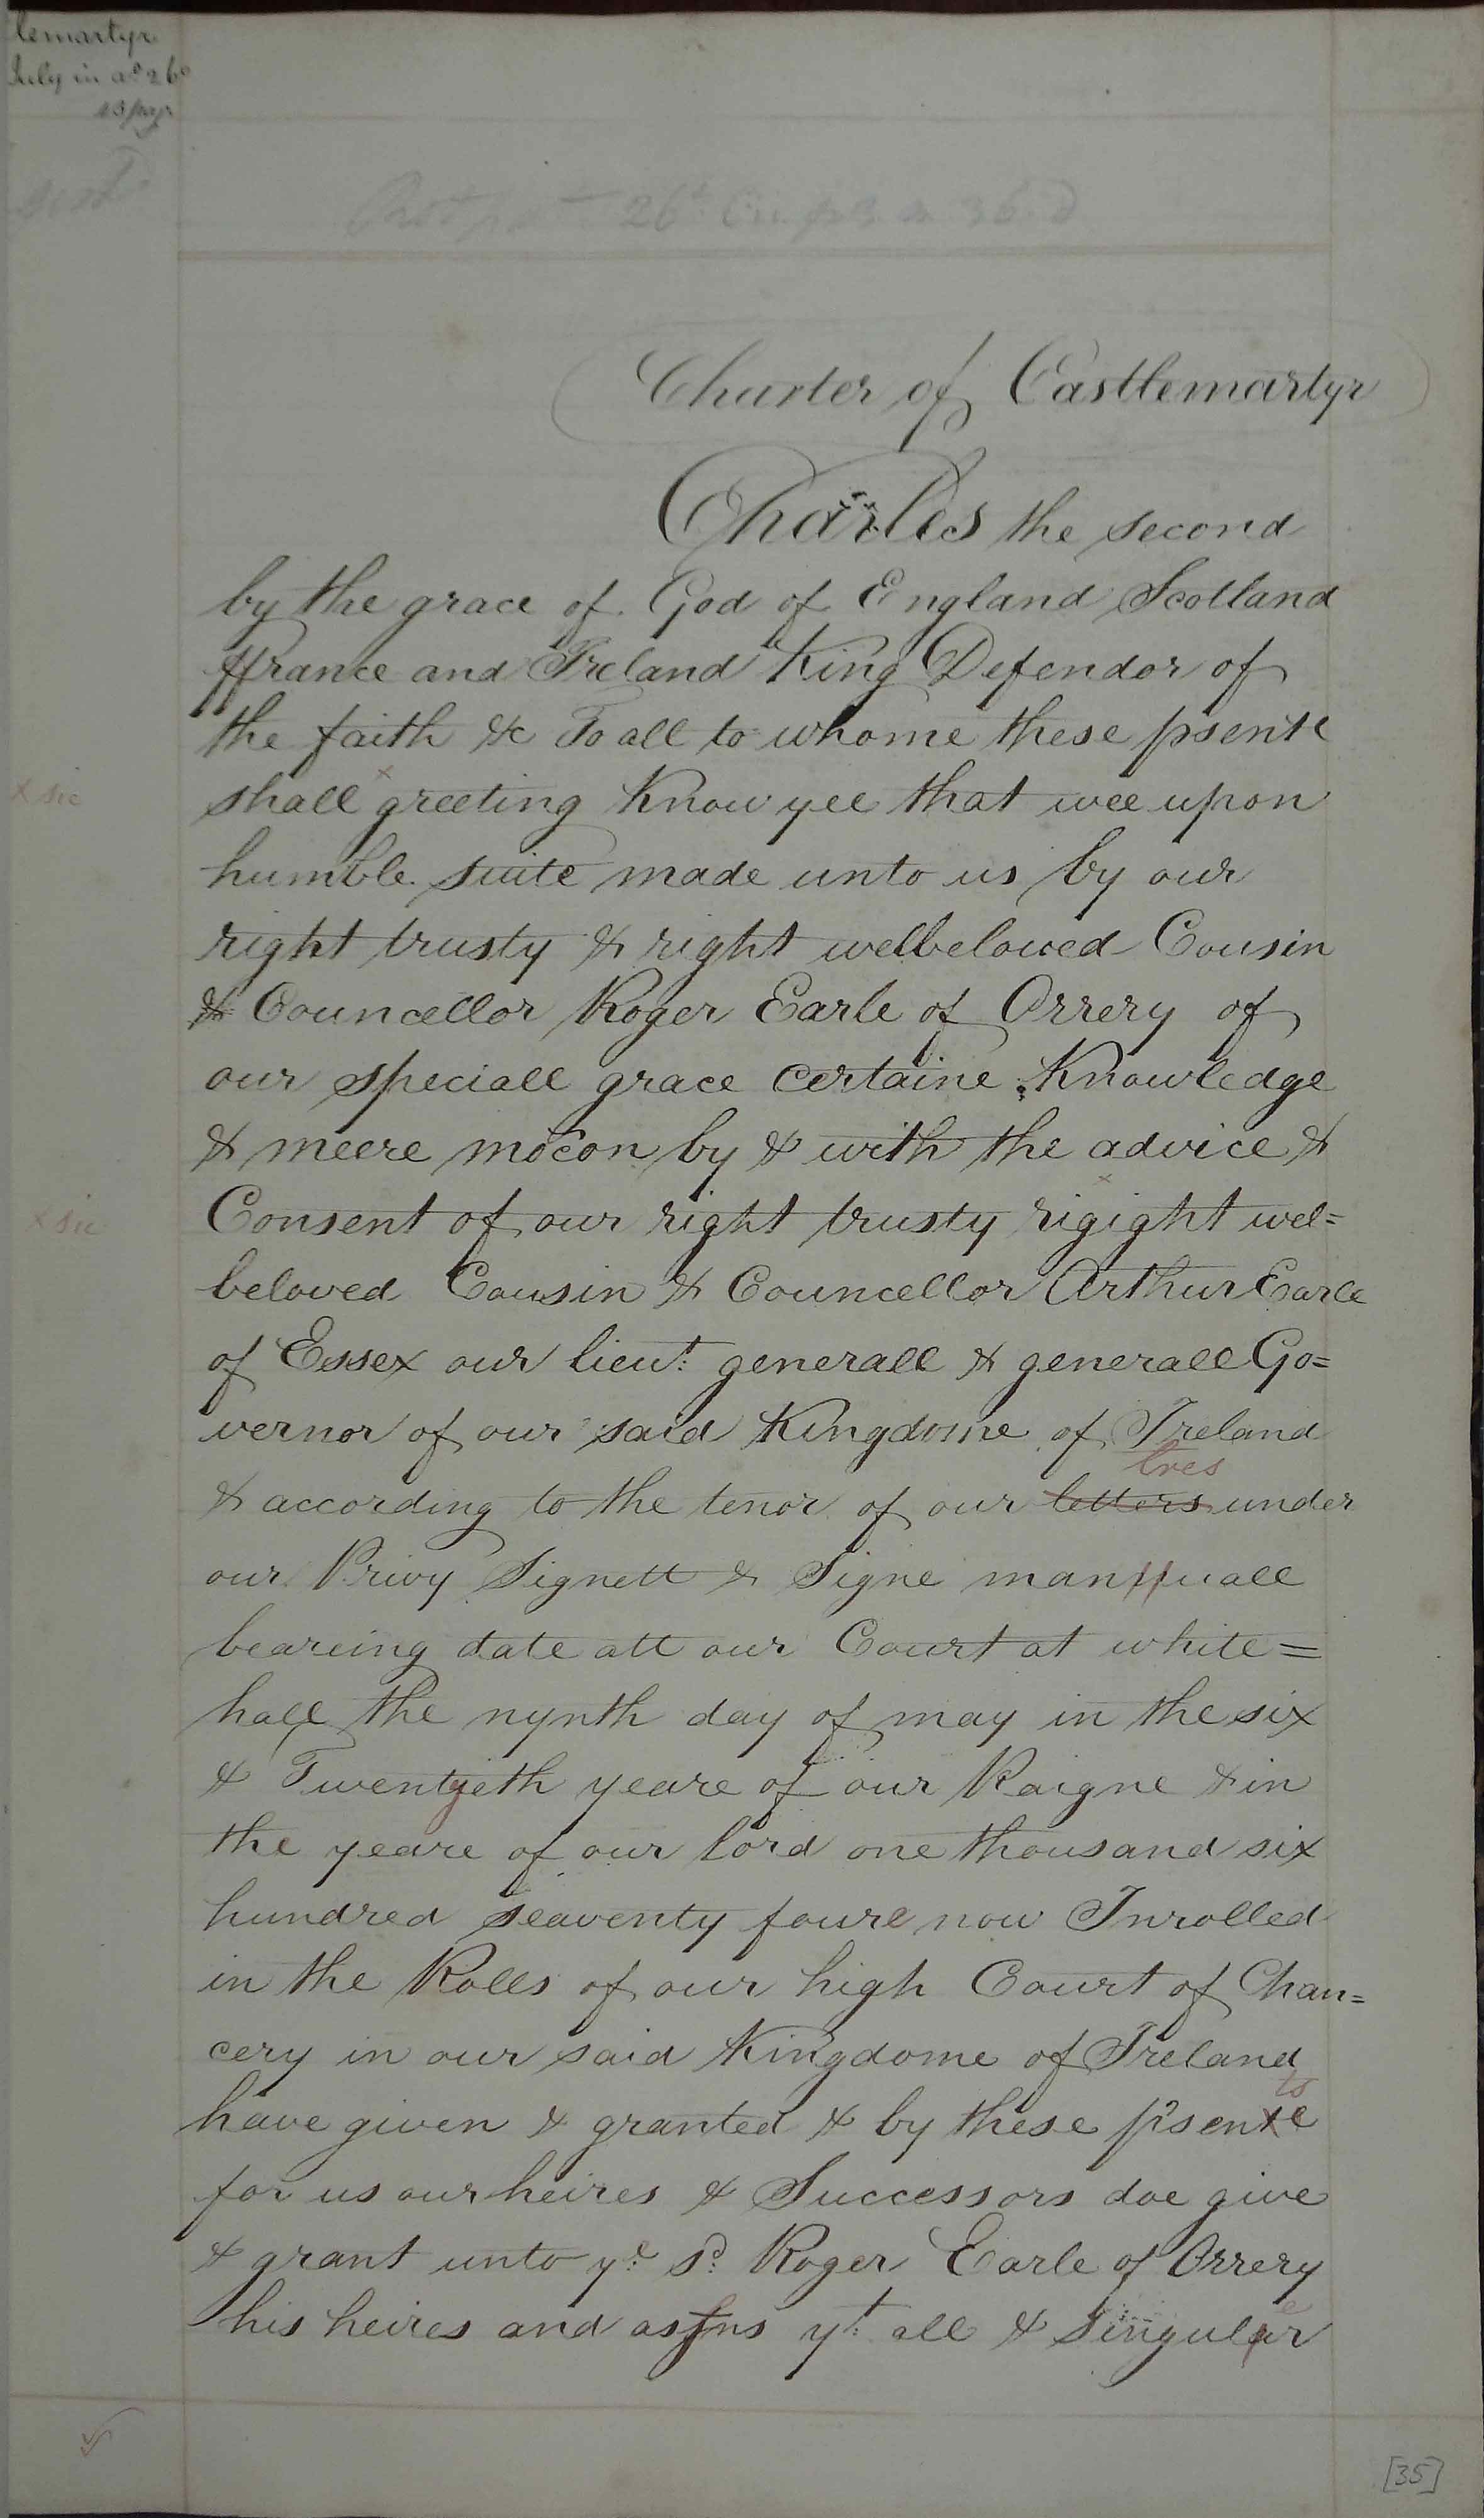 lemartyr
July in aº 26º
Charter of Castlemartyr
Charles the second
by the grace of God of England Scotland
ffrance and Ireland King Defendor of
the faith &c To all to whome these psente
x sic
shall x greeting Know yee that wee upon
humble suite made unto us by our
right trusty & right welbeloued Cousin
& Councellor Roger Earle of Orrery of
our speciall grace certaine Knowledge
& meere mocon by & with the advice &
x sic
Consent of our right trusty x rigight wel=
beloved Cousin & Councellor Arthur Earle
of Essex our lieut: generall & generall Go=
vernor of our said Kingdome of Ireland
lres
& according to the tenor of our letters under
our Privy Signett & Signe manuall
beareing date att our Court at white=
hall the nynth day of may in the six
& Twentyeth yeare of our Raigne & in
the yeare of our lord one thousand six
hundred seaventy foure now Inrolled
in the Rolls of our high Court of Chan=
cery in our said Kingdome of Ireland
ts
have given & granted & by these p'sente
for us our heires & Successors doe give
& grant unto ye: sd: Roger Earle of Orrery
his heires and assns yt: all & Singuler
[35]